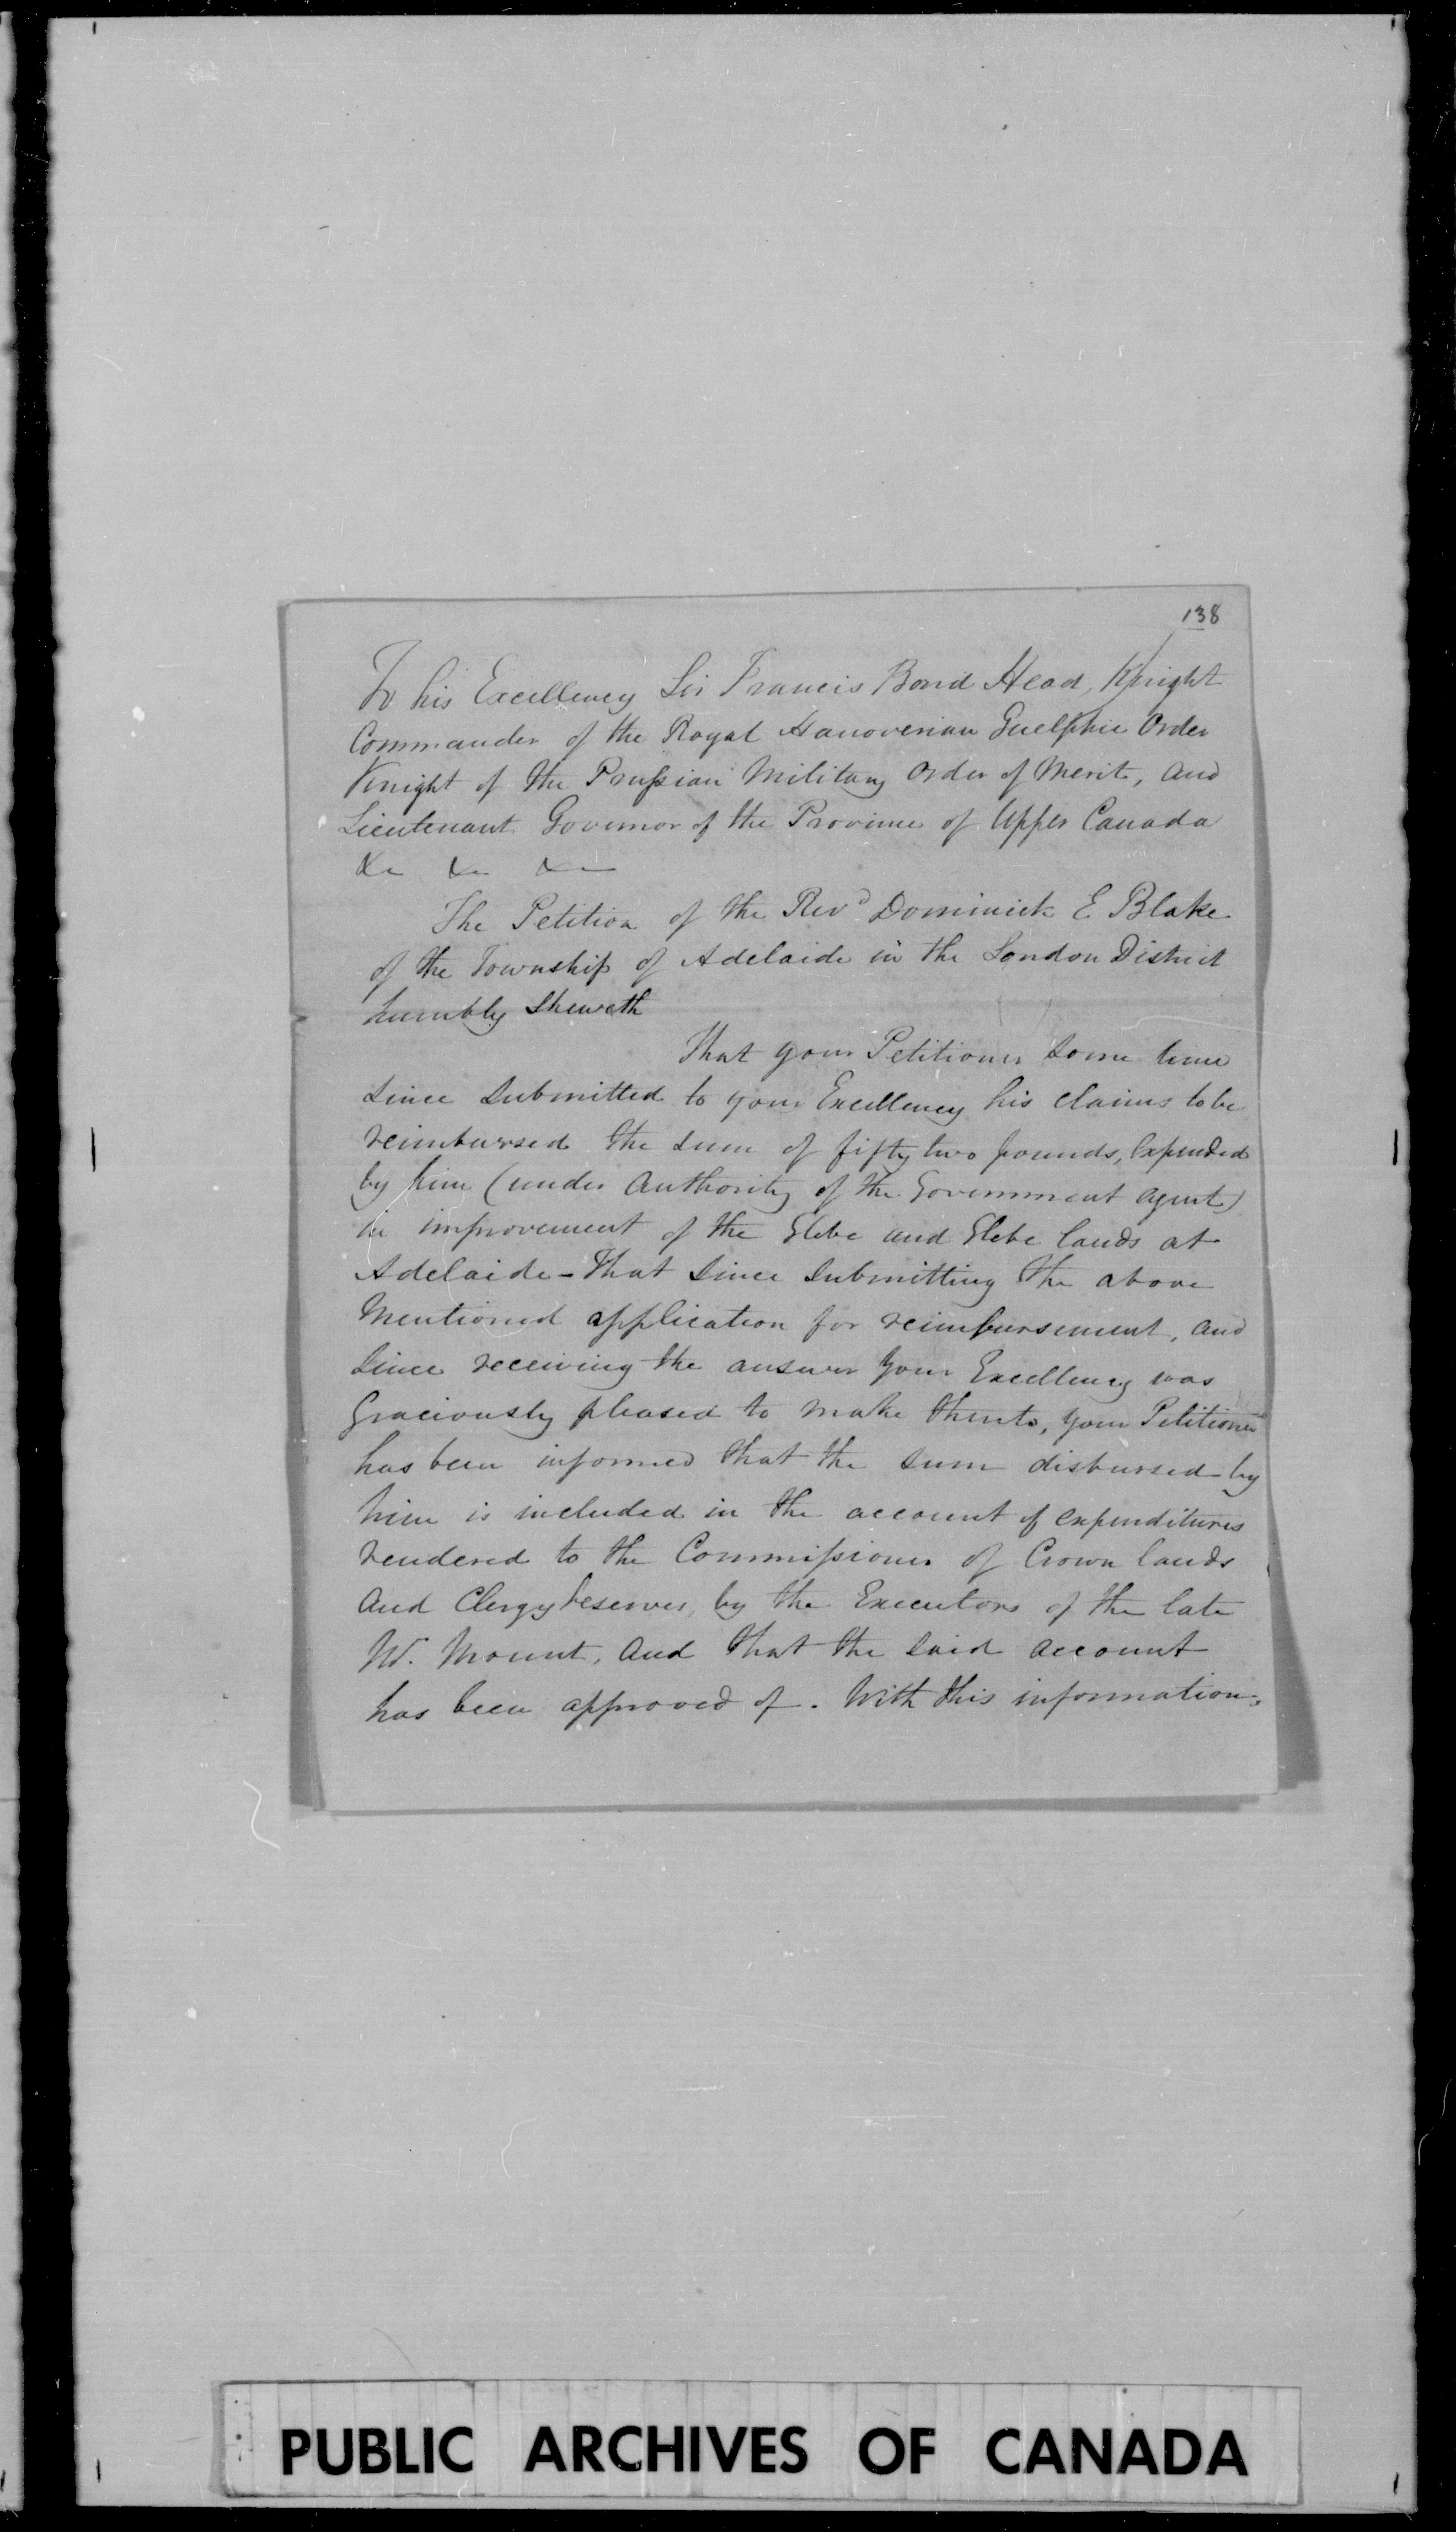 138
To his Excellency Sir Francis Bond Head, Knight
Commander of the Royal Hanoverian Guelphic Order
Knight of the Prussian Military Order of Merit, and
Lieutenant Governor of the Province of Upper Canada
&c &c &c
The Petition of the Revd Dominick E Blake
of the Township of Adelaide in the London District
humbly Sheweth
That your Petitioner some time
since submitted to your Excellency his claims to be
reimbursed the sum of fifty two pounds, expended
by him (under authority of the Government agent)
in improvement of the Glebe and Glebe lands at
Adelaide - That since submitting the above
Mentioned application for reimbursement, and
since receiving the answer your Excellency was
Graciously pleased to make thereto, your Petitioner
has been informed that the sum disbursed by
him is included in the account of expenditures
rendered to the Commissioner of Crown lands
and Clergy reserves, by the Executors of the late
Mr. Mount, and that the said account
has been approved of. With this information,
PUBLIC ARCHIVES OF CANADA